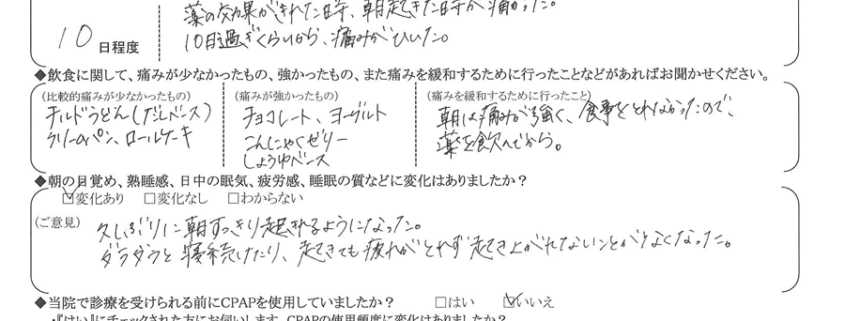 薬の効果がきれた時、朝起きた時が痛かった。
10日程度
10日過ぎくらいから、痛みがひいた。
◆飲食に関して、痛みが少なかったもの、強かったもの、また痛みを緩和するために行ったことなどがあればお聞かせください。
(比較的痛みが少なかったもの)
チルドうどん(だしベース)
クリームパン、ロールケーキ
(痛みが強かったもの)
チョコレート、ヨーグルト
こんにゃくゼリー
しょうゆベース
(痛みを緩和するために行ったこと)
朝は痛みが強く、食事をとれなかったので、
薬を飲んでから。
◆朝の目覚め、熟睡感、日中の眠気、疲労感、睡眠の質などに変化はありましたか?
☑変化あり □変化なし □わからない
(ご意見)
久しぶりに朝すっきり起きれるようになった。
ダラダラと寝続けたり、起きても疲れがとれず起き上がれないことがなくなった。
◆当院で診療を受けられる前にCPAPを使用していましたか? □はい ☑いいえ
・『はい』にチェックされた方にお伺いします。CPAPの使用頻度に変化はありましたか?